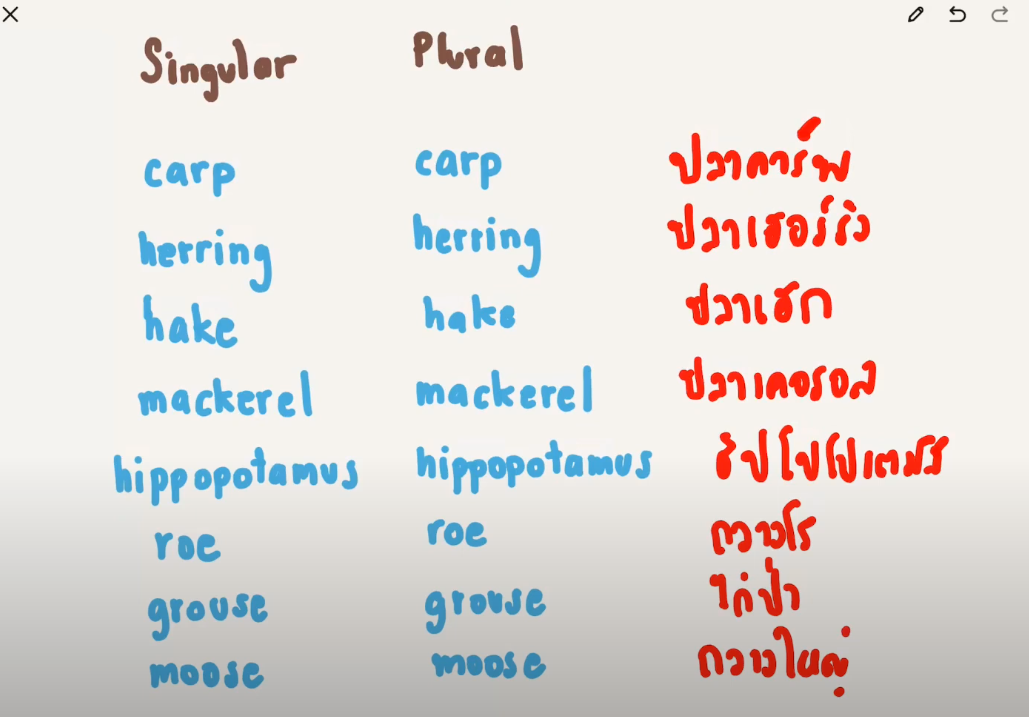 Singular Plural
carp carp ปลาคาร์พ
herring herring ปลาเฮอร์ริง
hake hake ปลาเฮก
mackerel mackerel ปลาเคอรอล
hippopotamus hippopotamus ฮิปโปโปเตมัส
roe roe กวางโร
grouse grouse ไก่ป่า
moose moose กวางใหญ่